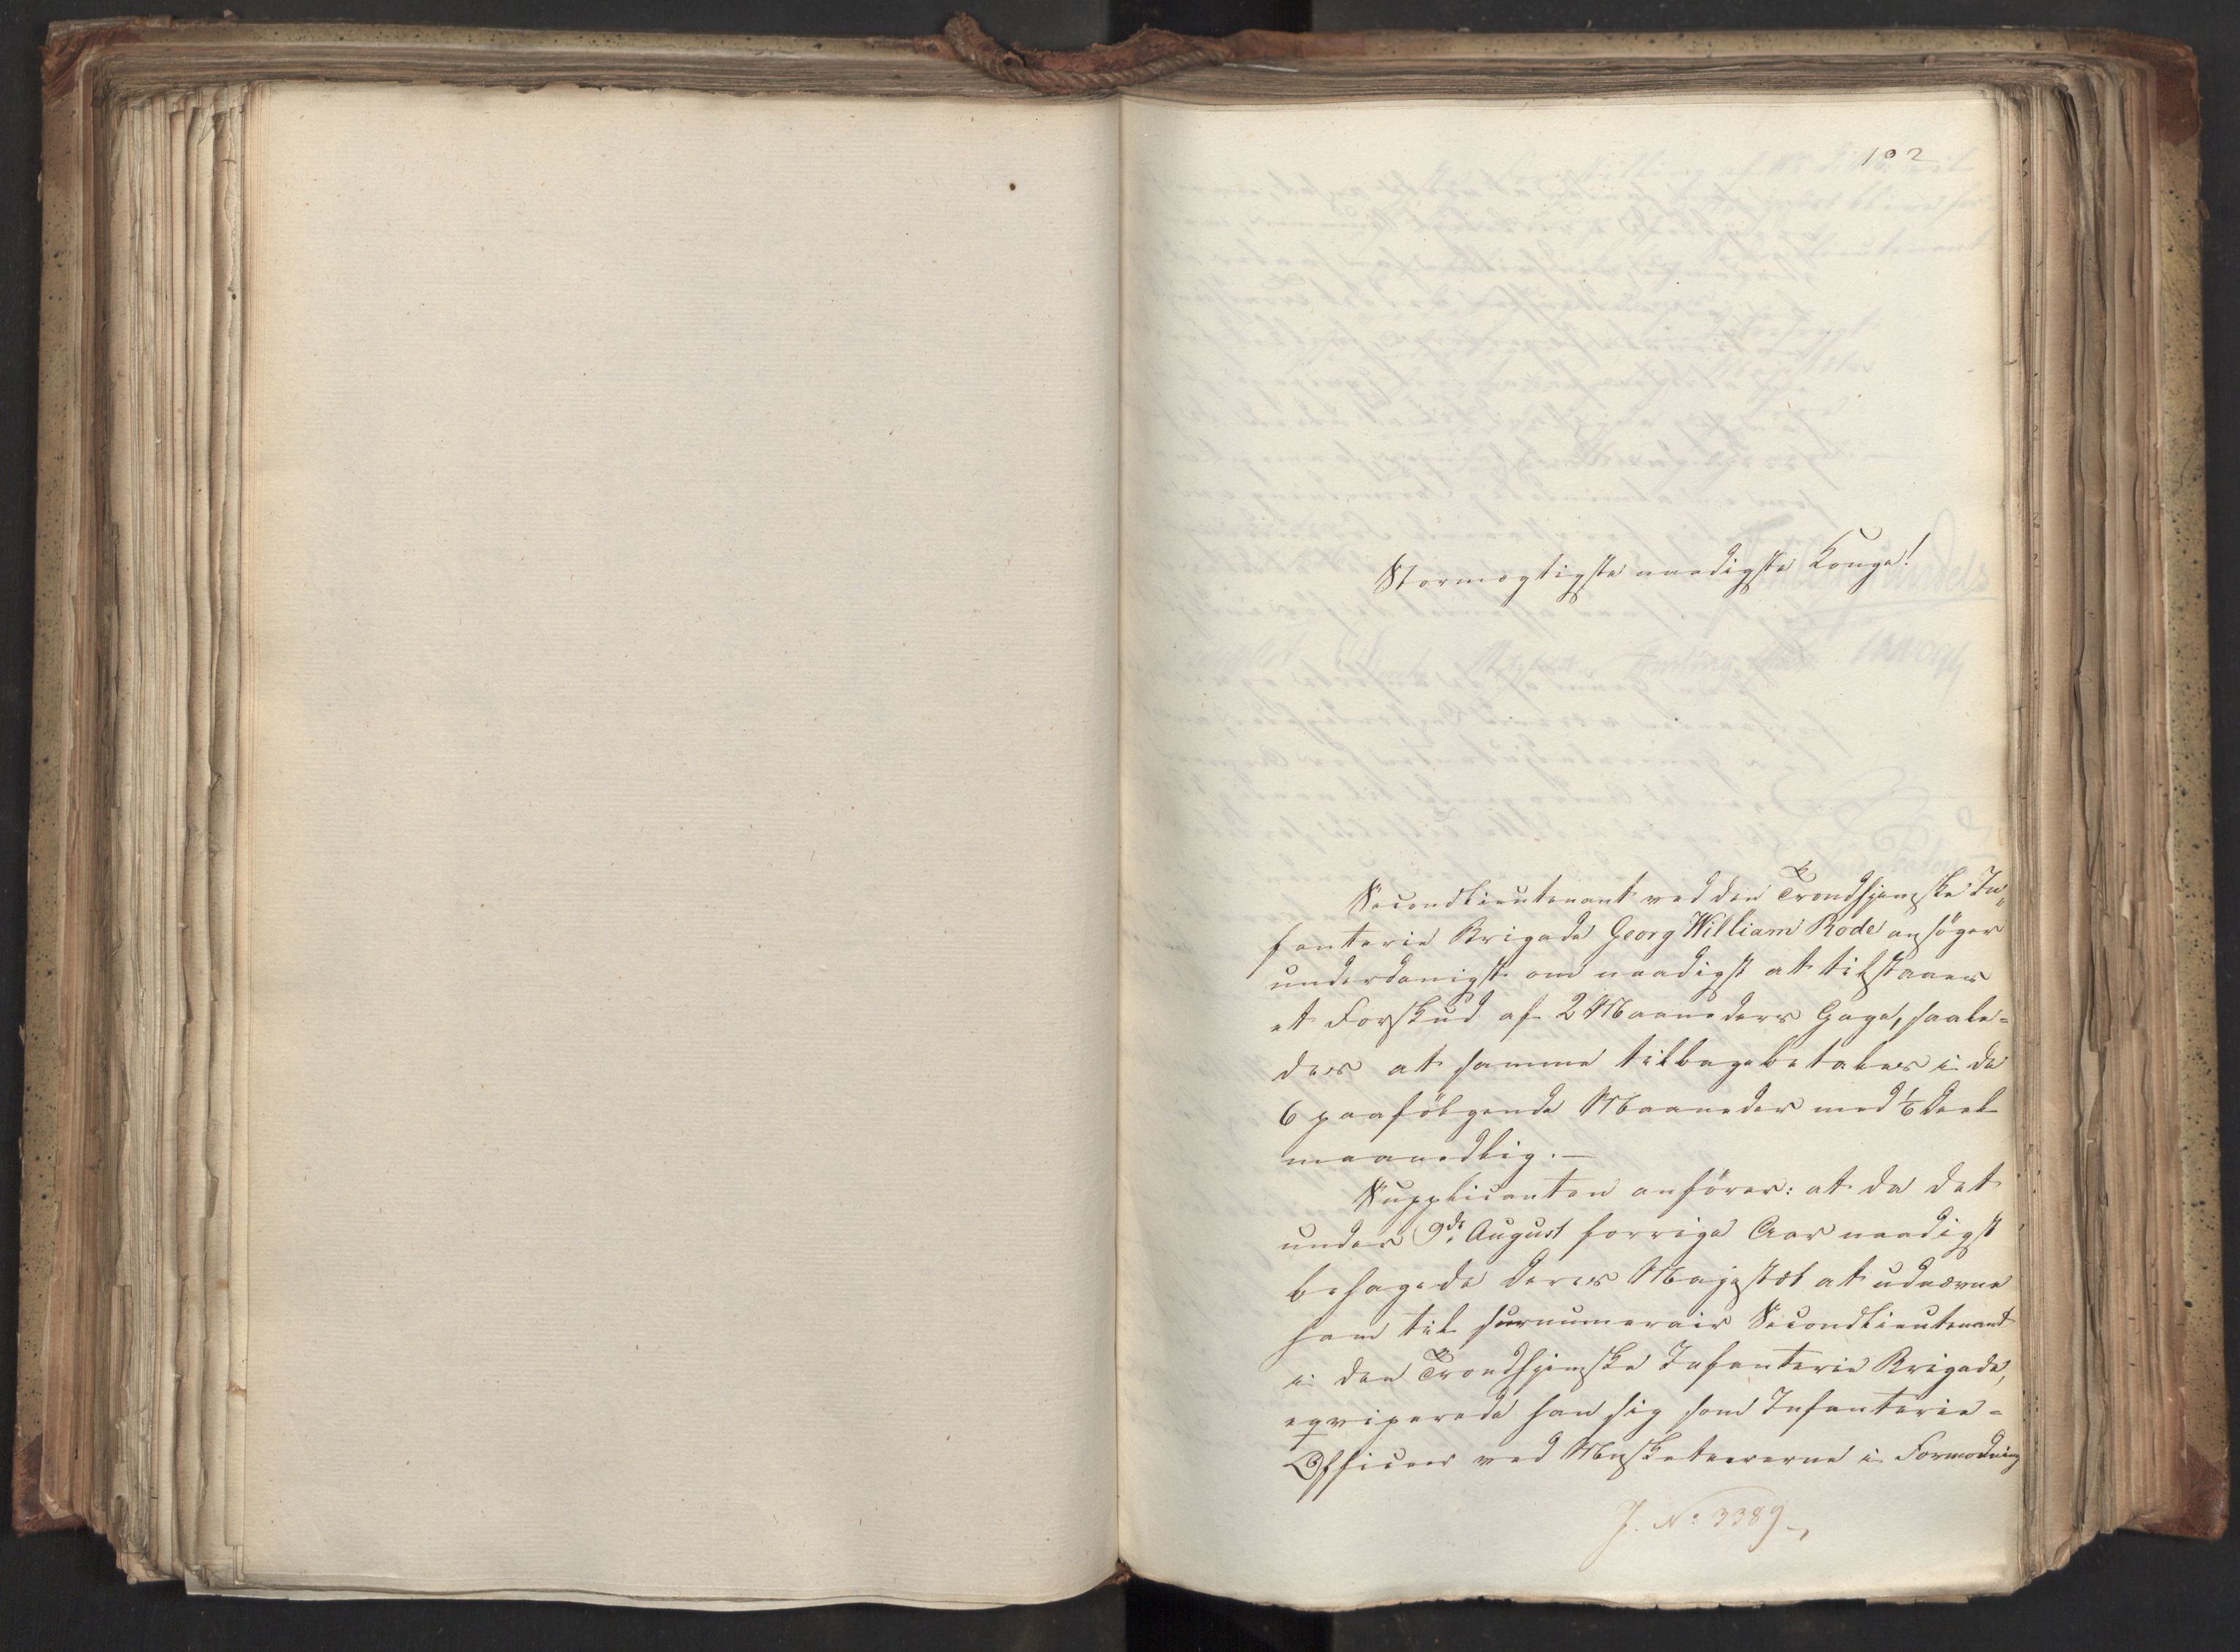 102
Stormægtigste naadigste Konge!
Secondlieutenant ved den Trondhjemske In„
fanterie Brigade Georg William Rode ansøger
underdanigst om naadigst at tilstaaes
et Forskud af 2 Maaneders Gage, saale-
des at samme tilbagebetales i de
6 paafølgende Maaneder med 1/6 Deel
maanedlig.—
Supplicanten anfører: at da det
under 9de August forrige Aar naadigst
behagede Deres Majestæt at udnævne
ham til surnumerair Secondlieutenant
i den Trondhjemske Infanterie Brigade,
eqviperede han sig som Infanterie-
Officeer ved Musketererne i Formodning
J. No 3389